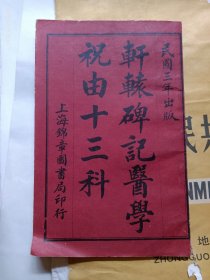 民國三年出版
軒轅碑記醫學
祝由十三科
上海錦章圖書局印行
民
地
ZHONGGUO